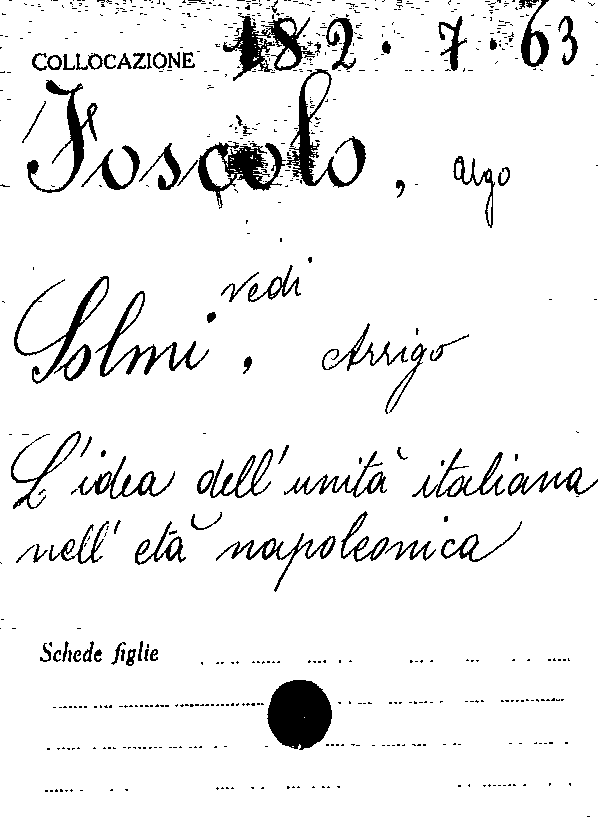 COLLOCAZIONE 182.7.63
Foscolo, Ugo
vedi
Solmi, Arrigo
L'idea dell'unità italiana
nell'età napoleonica
Schede figlie